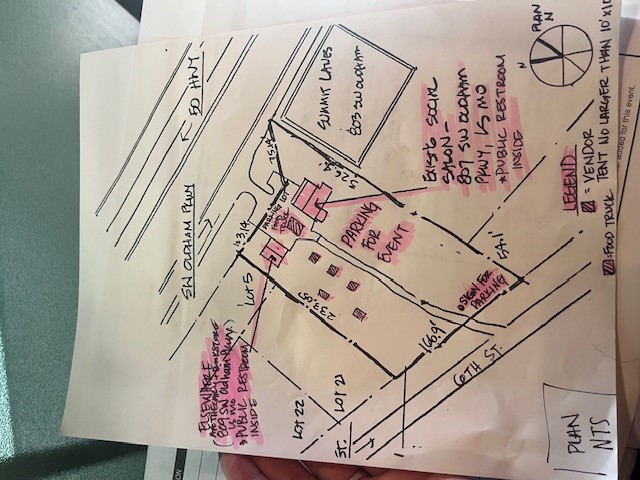 50 HWY
SW OLDHAM PKWY
SUMMIT LANES
803 SW OLDHAM
EXIST'G SOCIAL
SALON-
807 SW OLDHAM
PKWY, LS MO
*PUBLIC RESTROOM
INSIDE
PLAN
N
N
LEGEND
= VENDOR
TENT NO LARGER THAN 10'X10'
= FOOD TRUCK
PARKING LOT
FOOD
TRUCK
PARKING
FOR
EVENT
LOT 5
233.05'
SIGN FOR
PARKING
(809 SW OLDHAM PKWY.)
LS MO
*PUBLIC RESTROOM
INSIDE
LOT 22
LOT 21
ST.
6TH ST.
PLAN
NTS
added for this event.